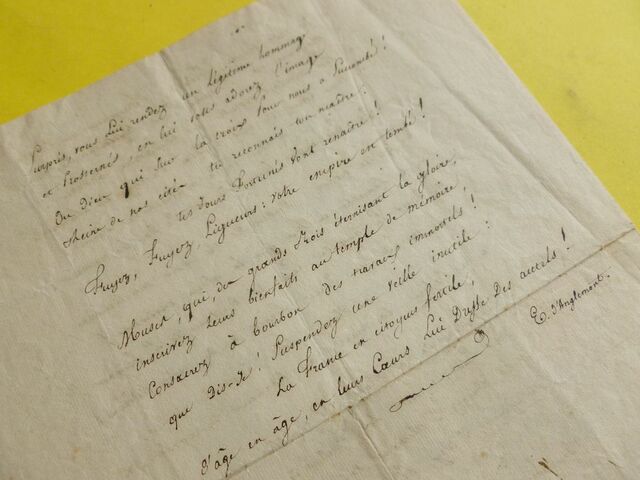 Surpris, vous lui rendez un légitime hommage
et Prosternés, en lui vous adorez l'image
Du Dieu qui sur la croix pour nous a succombé!
Reine de nos cités tu reconnais ton maître:
tes jours fortunés vont renaître!
Fuyez, Fuyez Ligueurs: votre empire en tombé!
Muses, qui, des grands Rois éternisant la gloire,
inscrivez leurs bienfaits au temple de mémoire,
Consacrez à bourbon des travaux immortels!
que Dis-je! Suspendez une veille inutile:
La France en citoyens fertile,
d'âge en âge, en leurs Cœurs Lui Dresse Des autels!
E. d'Anglemont.